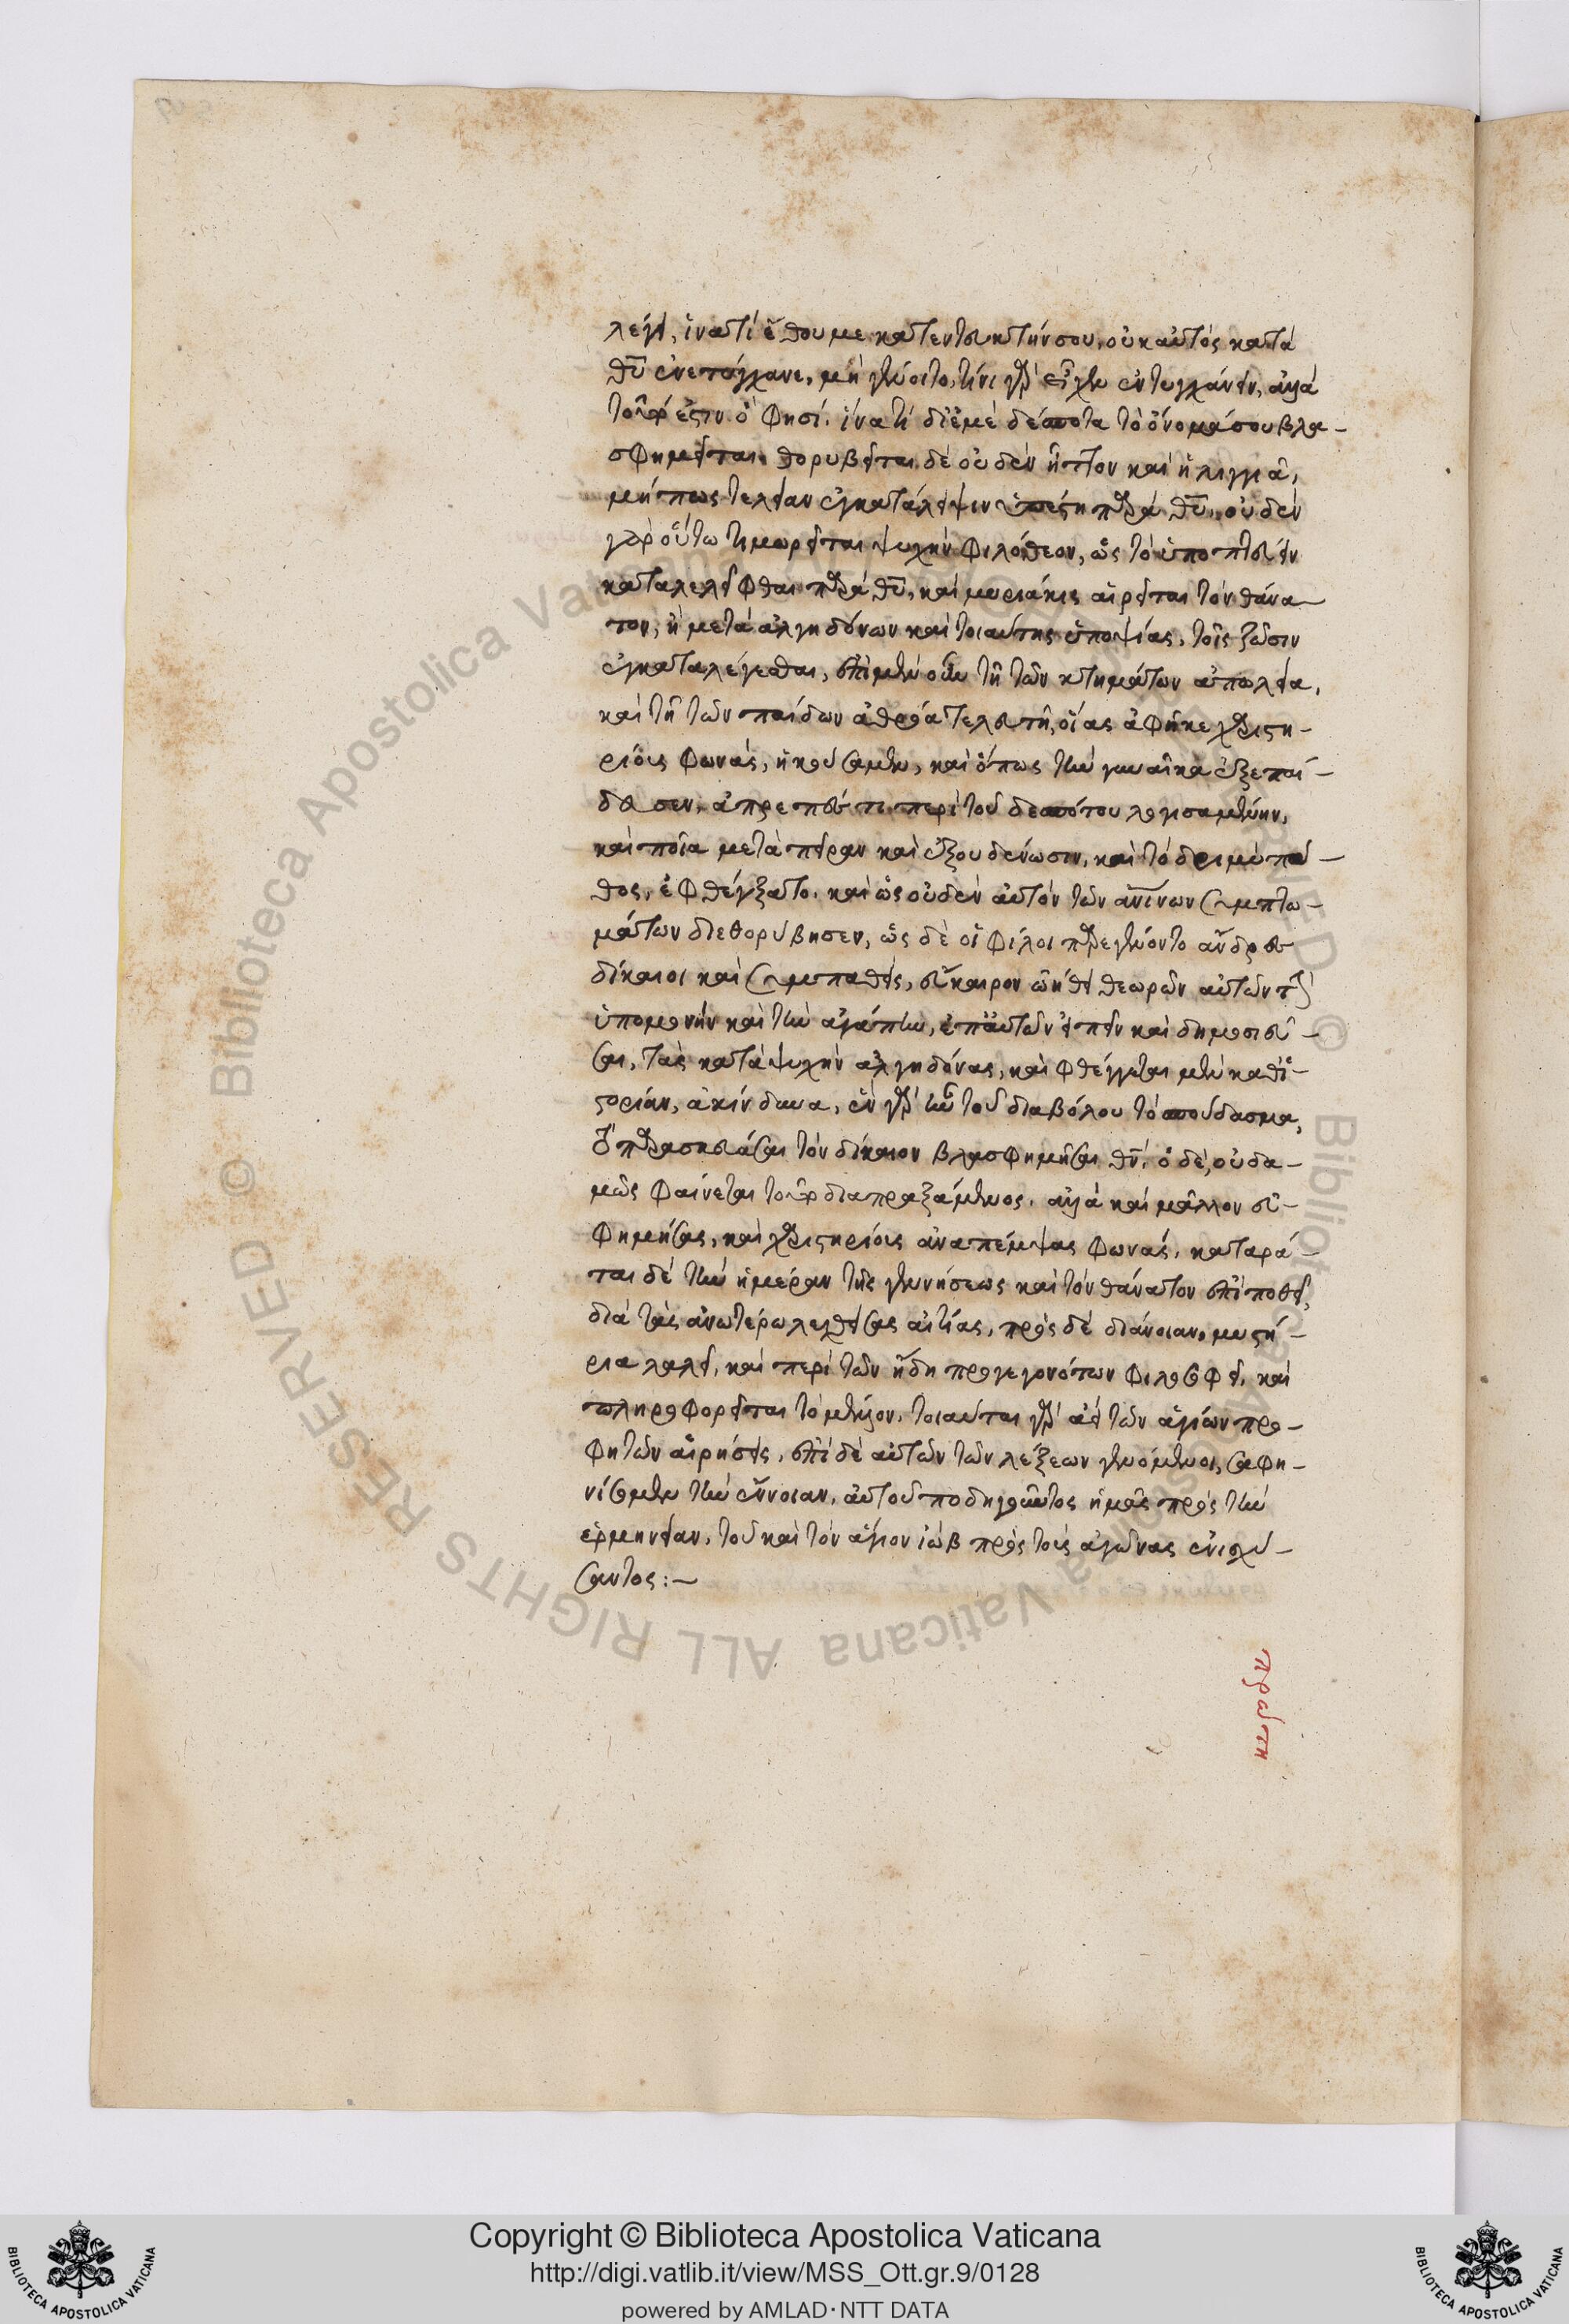 λέγει, ἱνατί ἔθου με κατεντευκτήν σου, οὐκ αὐτὸς κατὰ
θῡ ἐνετύγχανε, μὴ γένοιτο, τίνι γὰρ εἶχεν ἐντυγχάνειν, ἀλλὰ
τοῦτό ἐστιν ὅ φησί. ἱνατί δι' ἐμὲ δέσποτα τὸ ὄνομά σου βλα-
σφημεῖται. θορυβεῖται δὲ οὐδὲν ἧττον καὶ ἰλιγγιᾷ,
μήπως τελείαν ἐγκατάλειψιν ὑπέστη παρὰ θῡ, οὐδὲν
γὰρ οὕτω τιμωρεῖται ψυχὴν φιλόθεον, ὡς τὸ ὑποπτεύειν
καταλελεῖφθαι παρὰ θῡ, καὶ μυριάκις αἱρεῖται τὸν θάνα-
τον, ἢ μετὰ ἀλγηδόνων καὶ τοιαύτης ὑποψίας, τοῖς ζῶσιν
ἐγκαταλέγεσθαι, ἐπὶ μὲν οὖν τῇ τῶν κτημάτων ἀπωλεία,
καὶ τῇ τῶν παίδων ἀθρόα τελευτῇ, οἵας ἀφῆκε χαριστη-
ρίοις φωνάς, ἠκούσαμεν, καὶ ὅπως τὴν γυναῖκα ἐξεπαί-
δευσεν, ἀπρεπές τι περὶ τοῦ δεσπότου λογισαμένην,
καὶ ποῖα μετὰ πεῖραν καὶ ἐξουδένωσιν, καὶ τὸ δριμὺ πά-
θος, ἐφθέγξατο. καὶ ὡς οὐδὲν αὐτὸν τῶν ἀνίνων συμπτω-
μάτων διεθορύβησεν, ὡς δὲ οἱ φίλοι παρεγένοντο ἄνδρες
δίκαιοι καὶ συμπαθεῖς, εὔκαιρον ᾠήθη θεωρῶν αὐτῶν τὴν
ὑπομονὴν καὶ τὴν ἀγάπην, ἐπ' αὐτῶν εἰπεῖν καὶ δημοσιεῦ-
σαι, τὰς κατὰ ψυχὴν ἀλγηδόνας, καὶ φθέγγεται μὲν καθ' ἱ-
στορίαν, ἀκίνδυνα, ἓν γὰρ ἦν τοῦ διαβόλου τὸ σπούδασμα,
τὸ παρασκευάσαι τὸν δίκαιον βλασφημῆσαι θν̄, ὁ δὲ, οὐδα-
μῶς φαίνεται τοῦτο διαπραξάμενος, ἀλλὰ καὶ μᾶλλον εὐ-
φημήσας, καὶ χαριστηρίοις ἀναπέμψας φωνάς, καταρᾶ-
ται δὲ τὴν ἡμέραν τῆς γεννήσεως καὶ τὸν θάνατον ἐπιποθεῖ,
διὰ τὰς ἀνωτέρω λεχθείσας αἰτίας, πρὸς δὲ διάνοιαν, μυστή-
ρια λαλεῖ, καὶ περὶ τῶν ἤδη προγεγονότων φιλοσοφεῖ, καὶ
πληροφορεῖται τὸ μέλλον, τοιαῦται γὰρ ἀεὶ τῶν ἁγίων προ-
φητῶν αἱ ρήσεις, ἐπὶ δὲ αὐτῶν τῶν λέξεων γενόμενοι, σαφη-
νίσωμεν τὴν ἔννοιαν, αὐτοῦ ποδηγοῦντος ἡμᾶς πρὸς τὴν
ἑρμηνείαν, τοῦ καὶ τὸν ἅγιον ἰὼβ πρὸς τοὺς ἀγῶνας ἐνισχύ-
σαντος:—
πρώτη
Copyright © Biblioteca Apostolica Vaticana
http://digi.vatlib.it/view/MSS_Ott.gr.9/0128
powered by AMLAD·NTT DATA
BIBLIOTECA APOSTOLICA VATICANA
BIBLIOTECA APOSTOLICA VATICANA
© Biblioteca Apostolica Vaticana ALL RIGHTS RESERVED